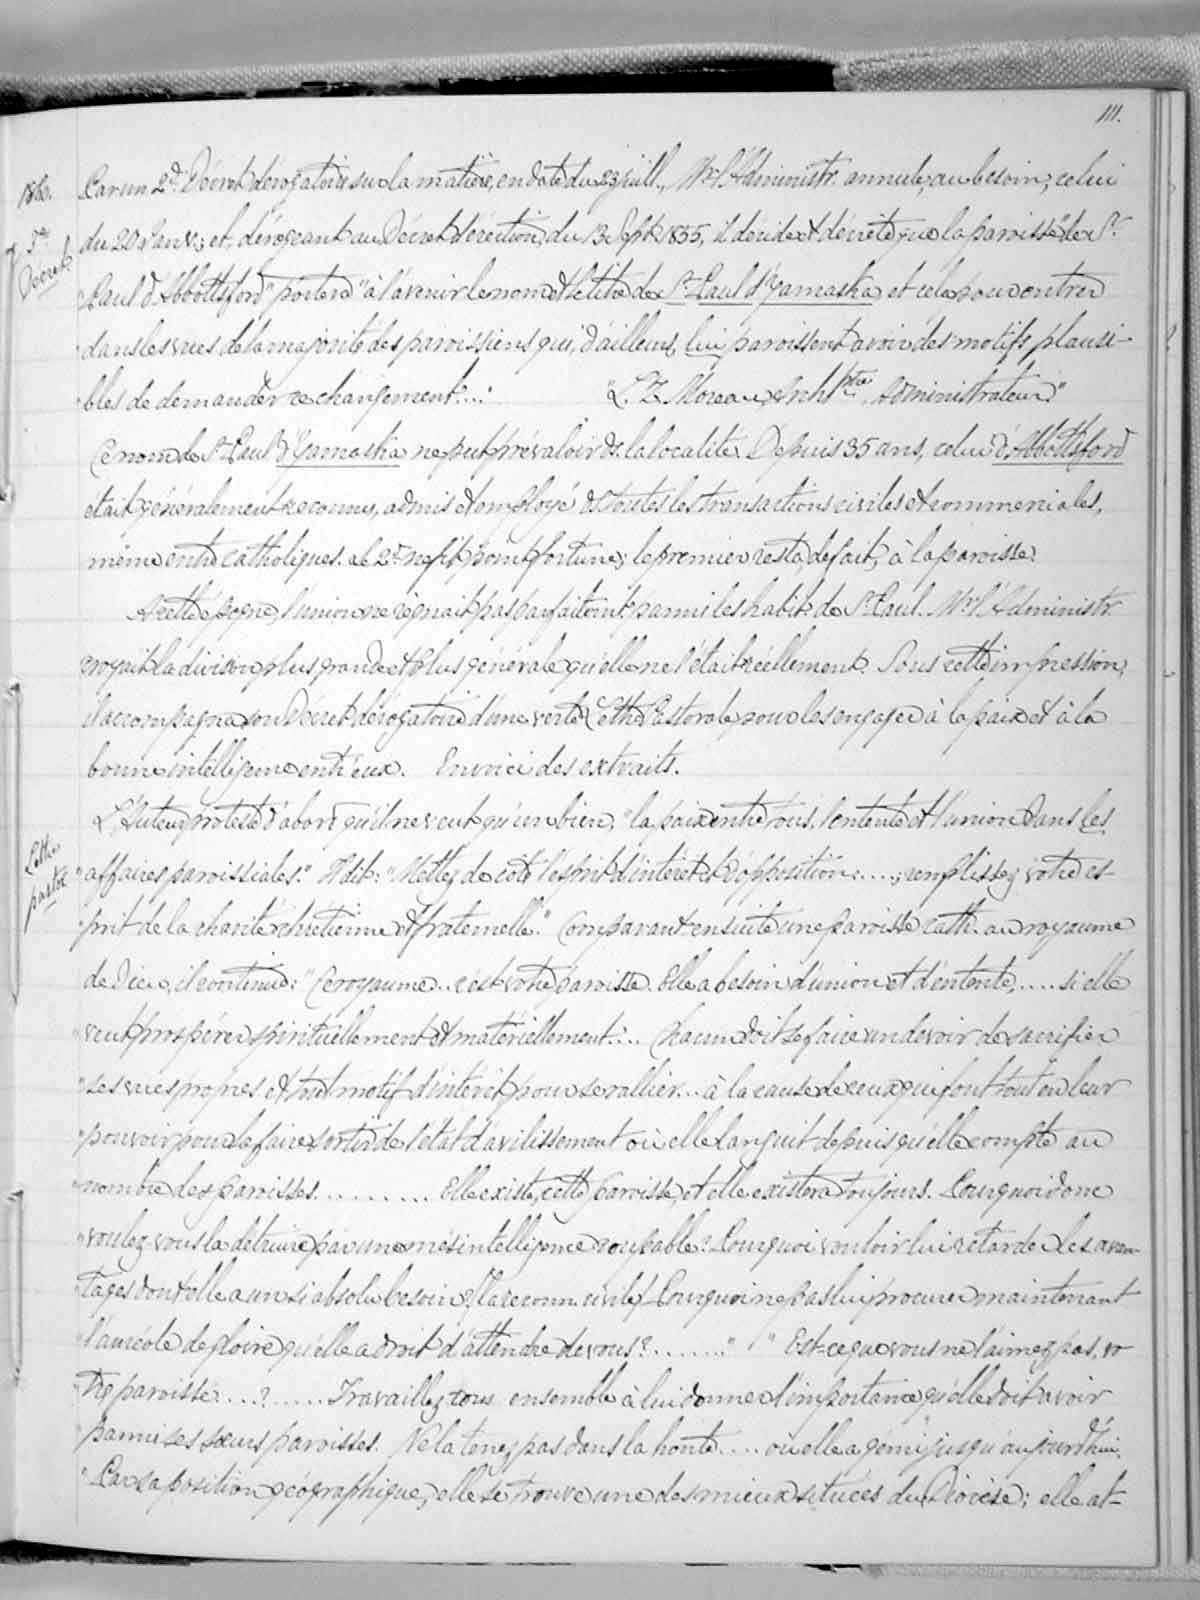 111.
1860.
5me
Décret
Par un 2d. Décret dérogatoire sur la matière, en date du 23 juill., Mr. l'Administr. annule, au besoin, celui
du 20 Janv.; et, dérogeant au Décret d'érection, du 13 Sept. 1855, il décide & décrète que la paroisse "de St.
"Paul d'Abbottsford" portera "à l'avenir le nom & le titre de St. Paul d'Yamaska, et cela pour entrer
"dans les vues de la majorité des paroissiens qui, d'ailleurs, lui paroissent avoir des motifs plausi-
"bles de demander ce changement"...
"L. Z. Moreau, Ptre, Administrateur"
Ce nom de St. Paul d'Yamaska ne put prévaloir ds. la localité. Depuis 35 ans, celui d'Abbottsford
était généralement reconnu, admis & employé ds toutes les transactions civiles & commerciales,
même entre catholiques. Le 2d. ne fit point fortune; le premier resta, de fait, à la paroisse.
A cette époque, l'union ne régnait pas parfaitemt. parmi les habit. de St. Paul. Mr. l'Administr.
croyait la division plus grande & plus générale qu'elle ne l'était réellement. Sous cette impression,
il accompagna son Décret dérogatoire d'une verte Lettre Pastorale pour les engager à la paix & à la
bonne intelligence entr'eux. En voici des extraits.
Lettre
pastle
L'Auteur proteste d'abord qu'il ne veut qu'un bien, "la paix entre tous, l'entente & l'union dans les
"affaires paroissiales." Il dit: "Mettez de côté l'esprit d'intérêt & d'opposition....; remplissez votre es-
"prit de la charité chrétienne & fraternelle." Comparant ensuite une paroisse cath. au royaume
de Dieu, il continue: "Ce royaume.. c'est votre paroisse. Elle a besoin d'union et d'entente,.... si elle
"veut prospérer spirituellement & matériellement... Chacun doit se faire un devoir de sacrifier
"ses vues propres & tout motif d'intérêt pour se rallier... à la cause de ceux qui font tout en leur
"pouvoir pour le faire sortir de l'état d'avilissement où elle languit depuis qu'elle compte au
"nombre des paroisses......... Elle existe, cette paroisse, et elle existera toujours. Pourquoi donc
"voulez-vous la détruire par une mésintelligence coupable? Pourquoi vouloir lui retarder les avan-
"tages dont elle a un si absolu besoin? (la reconn. civile) Pourquoi ne pas lui procurer maintenant
"l'auréole de gloire qu'elle a droit d'attendre de vous?......." "Est-ce que vous ne l'aimez pas, vo-
"tre paroisse....?...... Travaillez tous ensemble à lui donner l'importance qu'elle doit avoir
"parmi ses sœurs paroisses. Ne la tenez pas dans la honte.... où elle a gémi jusqu'aujourd'hui.
"Par sa position géographique, elle se trouve une des mieux situées du Diocèse; elle at-